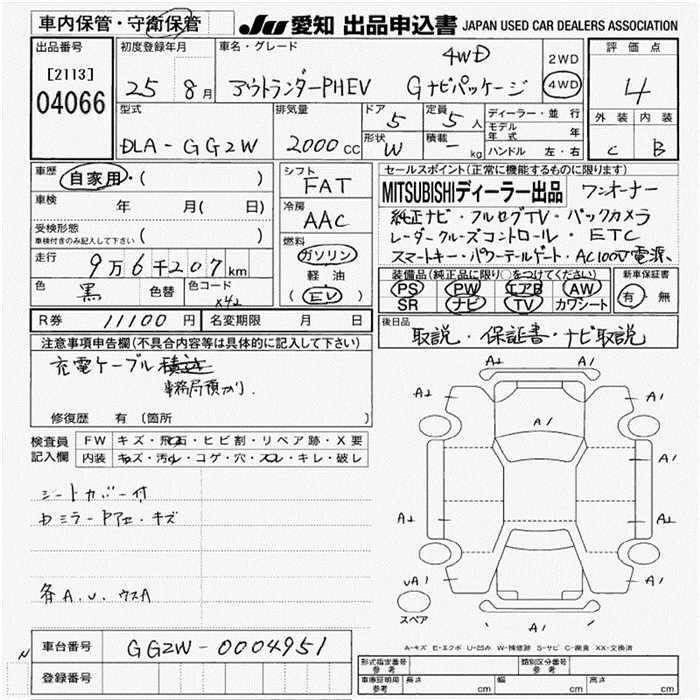 車内保管・守衛保管
JU 愛知 出品申込書 JAPAN USED CAR DEALERS ASSOCIATION
出品番号
[2113]
04066
初度登録年月
25 8月
車名・グレード
4WD
アウトランダーPHEV Gナビパッケージ
2WD
4WD
評価点
4
外装 内装
C B
型式
DLA-GG2W
排気量
2000cc
ドア 5
形状 W
定員 5人
積載 - kg
ディーラー・並行
モデル年式 年
ハンドル 左・右
車歴 自家用・( )
車検 年 月( 日)
受検形態
車検付きのみ記入して下さい ( )
走行 9万6千207km
色 黒 色替 色コード X42
シフト
FAT
冷房
AAC
燃料
ガソリン
軽油
(EV)
セールスポイント(正常に機能するものに限ります)
MITSUBISHIディーラー出品 ワンオーナー
純正ナビ・フルセグTV・バックカメラ
レーダークルーズコントロール・ETC
スマートキー・パワーテールゲート・AC100V電源、
装備品(純正品に限り○をつけてください)
PS PW エアB AW
SR ナビ TV カワシート
新車保証書
有・無
R券 11100円 名変期限 月 日
後日品
取説・保証書・ナビ取説
注意事項申告欄(不具合内容等は具体的に記入して下さい)
充電ケーブル積込
事務局預かり.
修復歴 有(箇所 )
検査員記入欄
FW キズ・飛石・ヒビ割・リペア跡・X要
内装 キズ・汚れ・コゲ・穴・スレ・キレ・破レ
シートカバー付
各A.U.ウスA
A2 A1
A2 A1
A1
A2 A2 A1
UA1 A1
A1
スペア
A-キズ E-エクボ U-凹み W-補修跡 S-サビ C-腐食 XX-交換済
N
車台番号 GG2W-0004951
登録番号
形式指定番号 参考
類別区分番号 参考
車庫証明用 参考 長さ cm 幅 cm 高さ cm